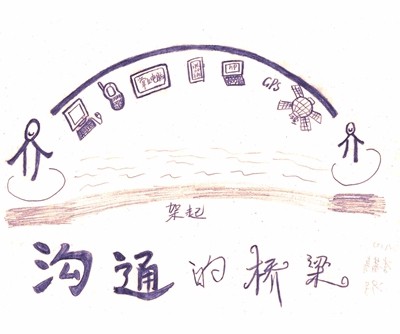 GPS
架起
沟通的桥梁。